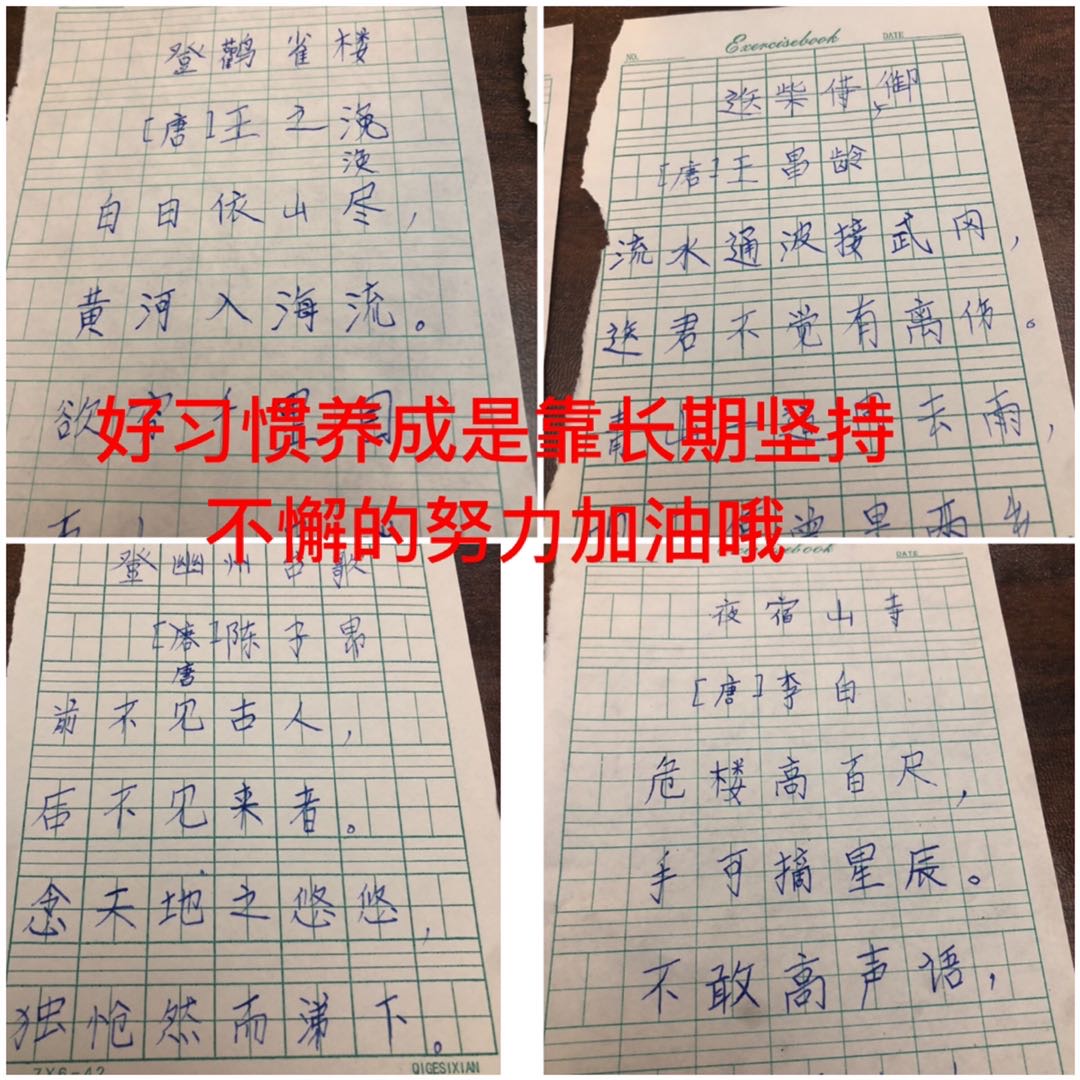 登鹳雀楼
[唐]王之涣
涣
白日依山尽,
黄河入海流。
欲
Exercisebook
NO.
DATE
送柴侍御
[唐]王昌龄
流水通波接武冈,
送君不觉有离伤。
青山一 去雨,
好习惯养成是靠长期坚持
不懈的努力加油哦
登幽州台歌
[唐]陈子昂
唐
前不见古人,
后不见来者。
念天地之悠悠,
独怆然而涕下。
7X6-42
QIGESIXIAN
DATE
夜宿山寺
[唐]李白
危楼高百尺,
手可摘星辰。
不敢高声语,